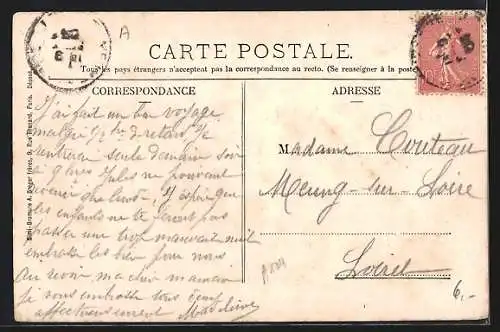 A
CARTE POSTALE.
Tous les pays étrangers n'acceptent pas la correspondance au recto. (Se renseigner à la poste
CORRESPONDANCE
ADRESSE
J'ai fait un bon voyage
malgré 1/2 h de retard. Je
rentrerai seule demain soir
9 h Jules ne pouvant
revenir que lundi. J'espère que
les enfants ne te feront pas
passer une trop mauvaise nuit
embrasse les bien pour nous
Au revoir ma chère maman
je vous embrasse tous
affectueusement Madeleine
Madame Couteau
Meung-sur-Loire
Loiret
6,-